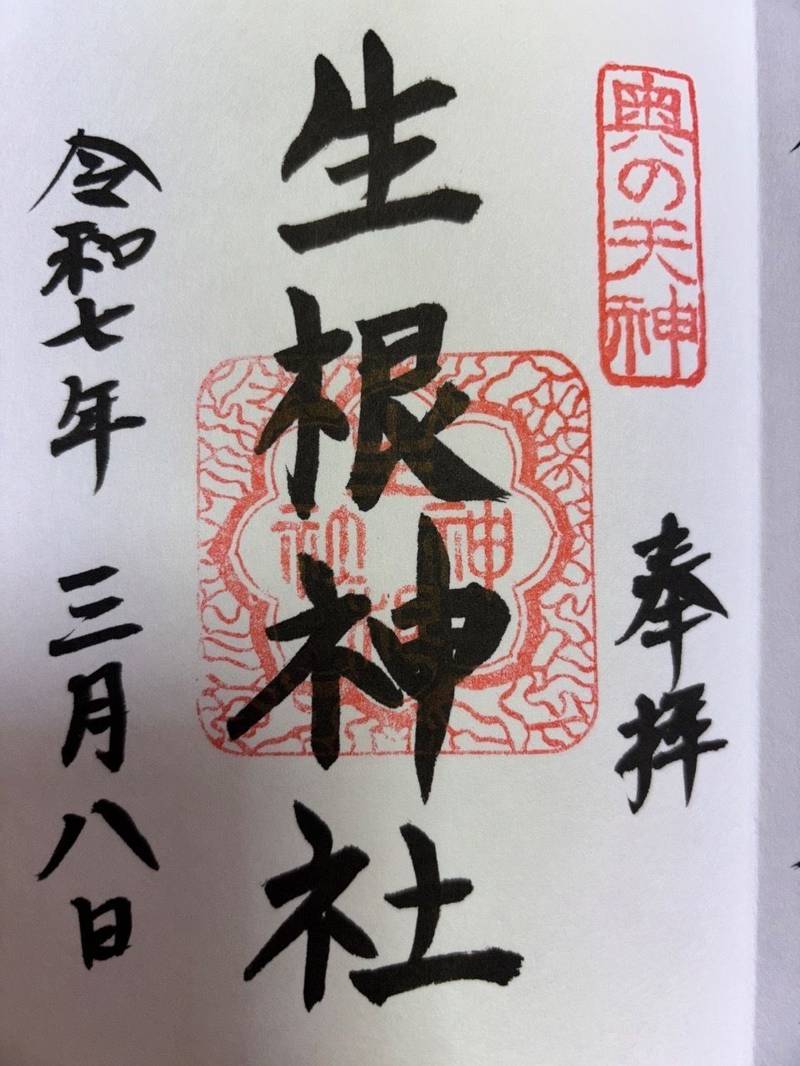 奥の天神
奉拝
生根神社
令和七年 三月八日